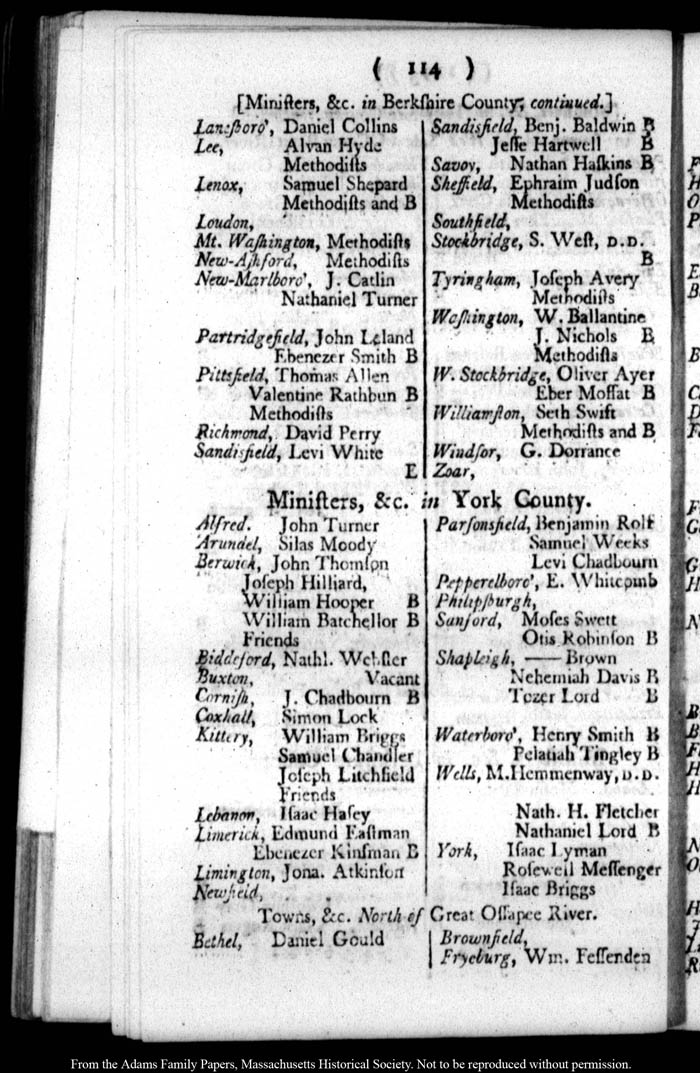 ( 114 )
[Miniſters, &c. in Berkſhire County, continued.]
Laneſboro', Daniel Collins
Lee, Alvan Hyde
Methodiſts
Lenox, Samuel Shepard
Methodiſts and B
Loudon,
Mt. Waſhington, Methodiſts
New-Aſhford, Methodiſts
New-Marlboro', J. Catlin
Nathaniel Turner
Partridgefield, John Leland
Ebenezer Smith B
Pittsfield, Thomas Allen
Valentine Rathbun B
Methodiſts
Richmond, David Perry
Sandisfield, Levi White
E
Sandisfield, Benj. Baldwin B
Jeſſe Hartwell B
Savoy, Nathan Haſkins B
Sheffield, Ephraim Judſon
Methodiſts
Southfield,
Stockbridge, S. Weſt, D.D.
B
Tyringham, Joſeph Avery
Methodiſts
Waſhington, W. Ballantine
J. Nichols B
Methodiſts
W. Stockbridge, Oliver Ayer
Eber Moffat B
Williamſton, Seth Swift
Methodiſts and B
Windſor, G. Dorrance
Zoar,
Miniſters, &c. in York County.
Alfred. John Turner
Arundel, Silas Moody
Berwick, John Thomſon
Joſeph Hilliard,
William Hooper B
William Batchellor B
Friends
Biddeford, Nathl. Webſter
Buxton, Vacant
Corniſh, J. Chadbourn B
Coxhall, Simon Lock
Kittery, William Briggs
Samuel Chandler
Joſeph Litchfield
Friends
Lebanon, Iſaac Haſey
Limerick, Edmund Eaſtman
Ebenezer Kinſman B
Limington, Jona. Atkinſon
Newfield,
Parſonsfield, Benjamin Rolf
Samuel Weeks
Levi Chadbourn
Pepperelboro', E. Whitcomb
Philipſburgh,
Sanford, Moſes Swett
Otis Robinſon B
Shapleigh, —— Brown
Nehemiah Davis B
Tozer Lord B
Waterboro', Henry Smith B
Pelatiah Tingley B
Wells, M. Hemmenway, D.D.
Nath. H. Fletcher
Nathaniel Lord B
York, Iſaac Lyman
Roſewell Meſſenger
Iſaac Briggs
Towns, &c. North of Great Oſſapee River.
Bethel, Daniel Gould
Brownfield,
Fryeburg, Wm. Feſſenden
From the Adams Family Papers, Massachusetts Historical Society. Not to be reproduced without permission.